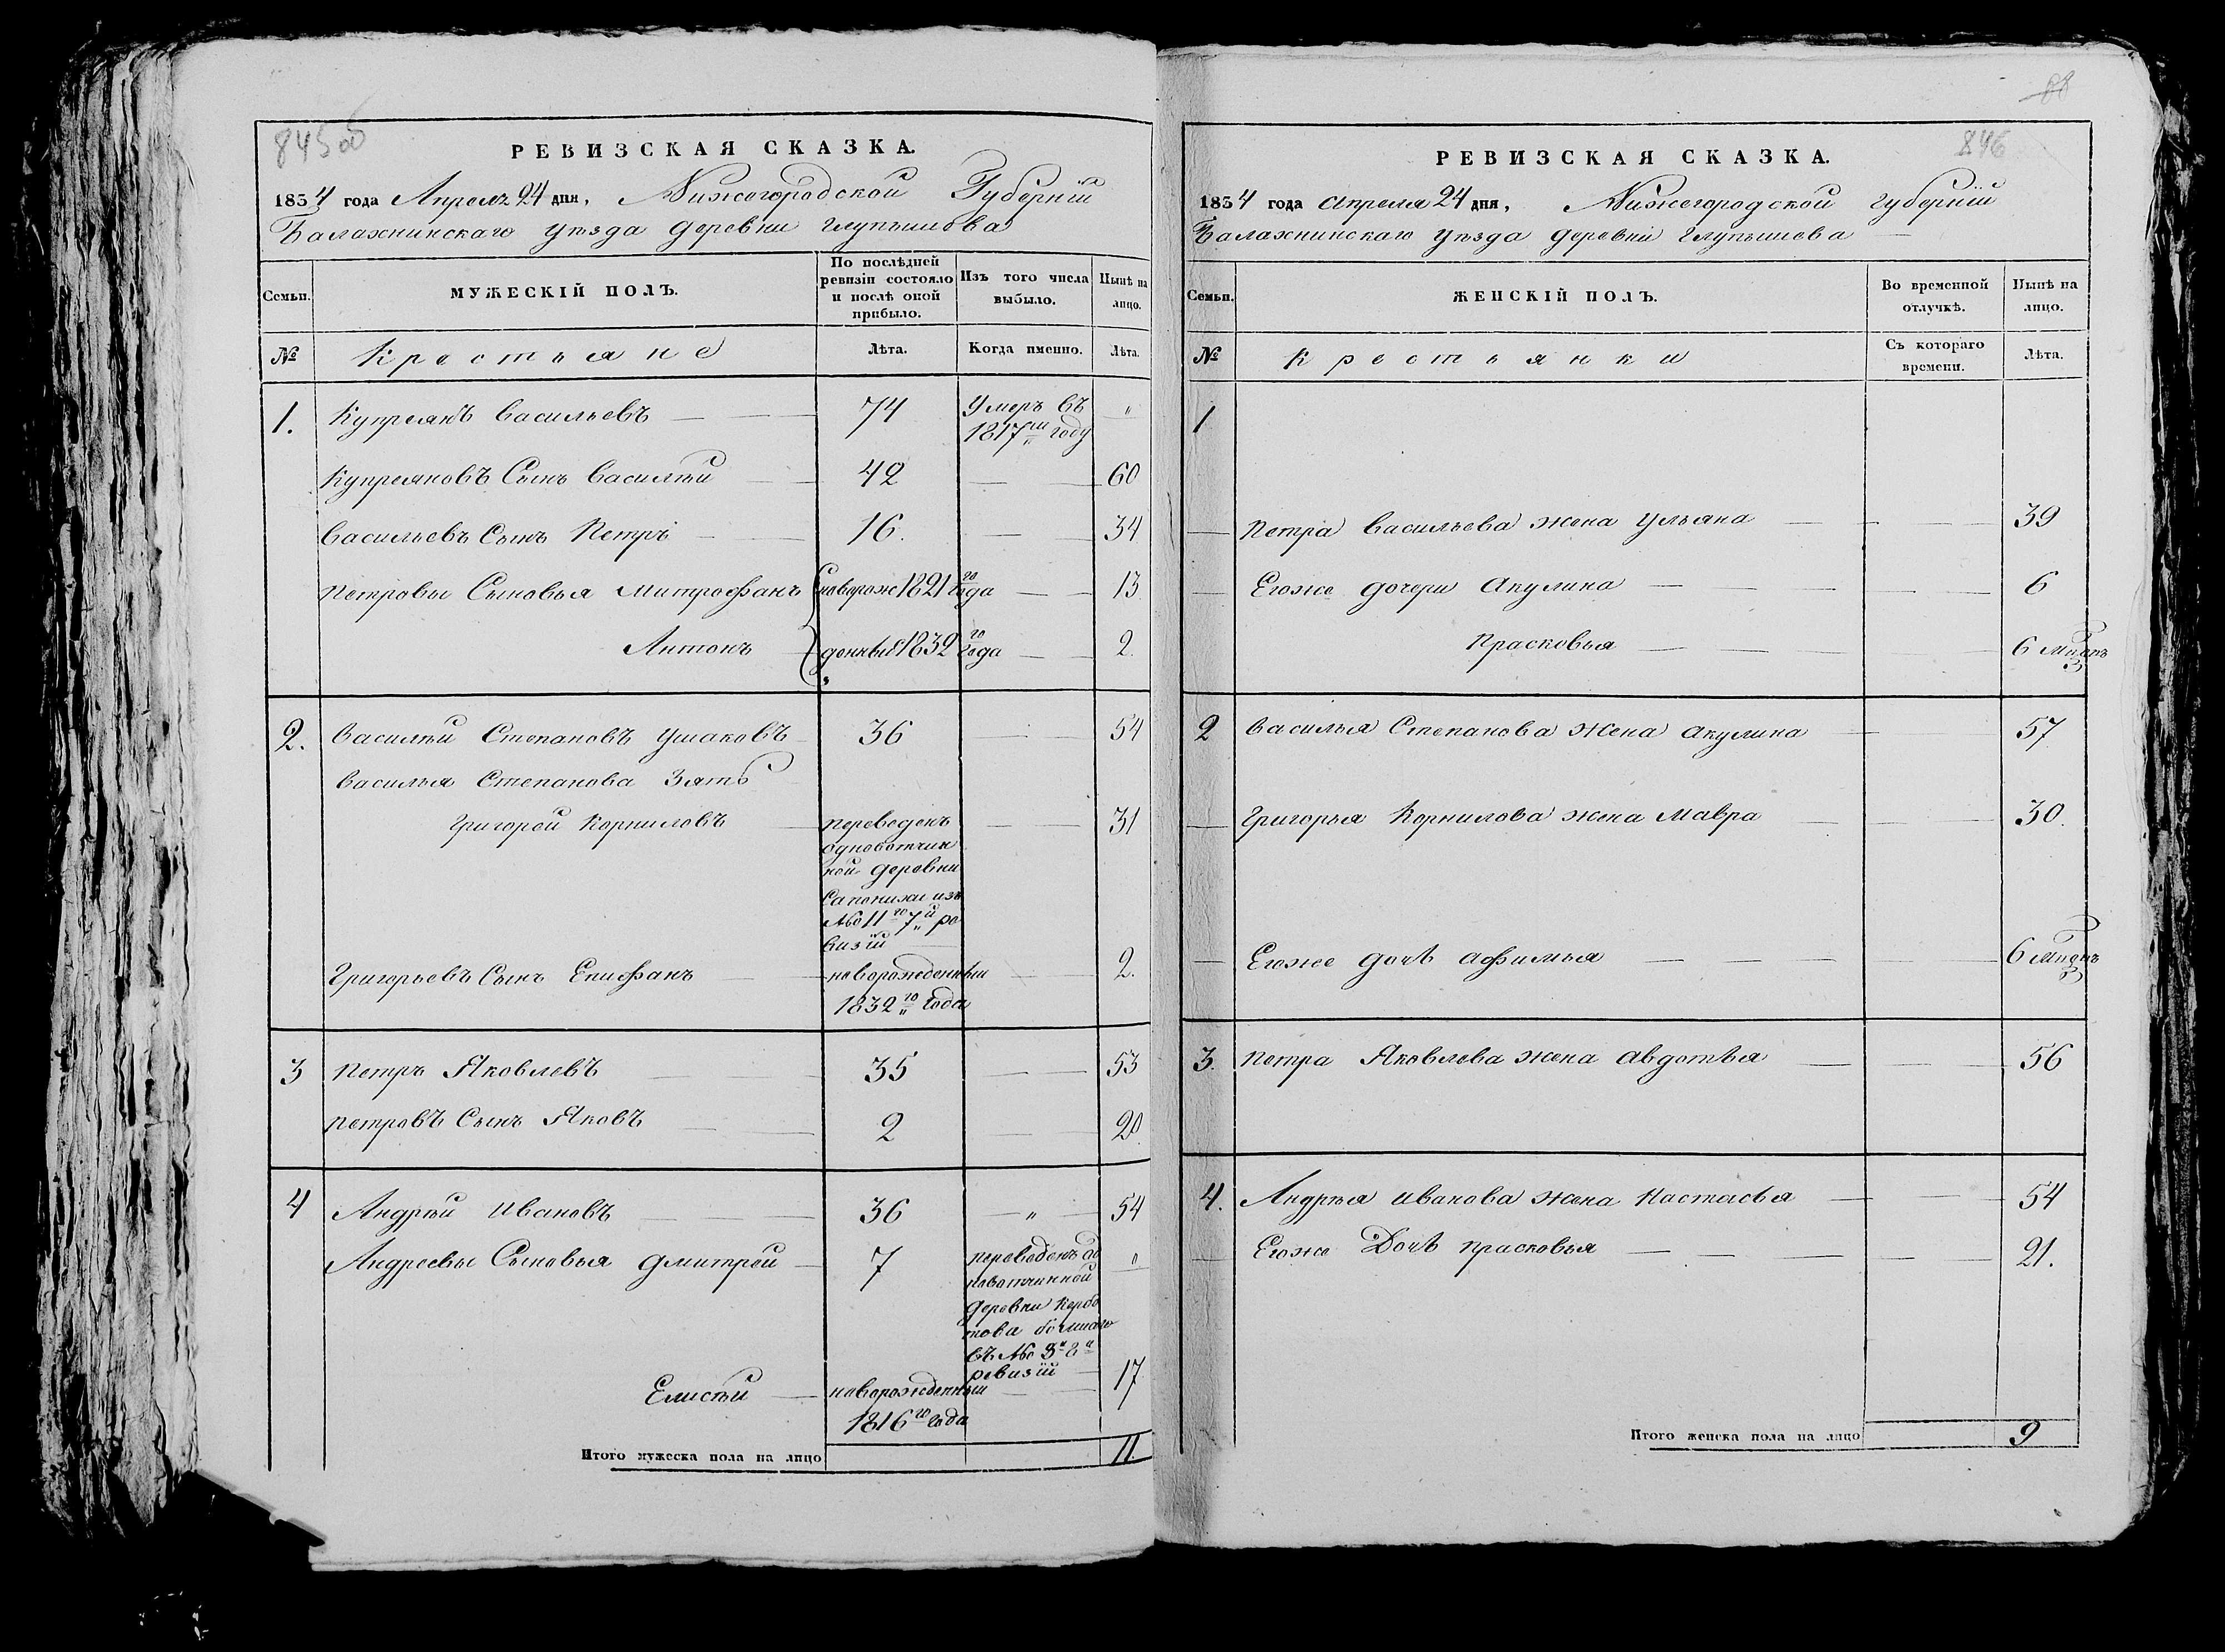 845об
РЕВИЗСКАЯ СКАЗКА.
1834 года Апреля 24 дня, Нижегородской Губерніи
Балахнинскаго уѣзда деревни Глупышова
Семьи.
МУЖЕСКІЙ ПОЛЪ.
По послѣдней
ревизіи состояло
и послѣ оной
прибыло.
Изъ того числа
выбыло.
Нынѣ на
лицо.
№
Крестьяне
Лѣта.
Когда именно.
Лѣта.
1. Купреянъ Васильевъ 74 Умеръ въ "
1817мъ году
Купреяновъ Сынъ Василѣй 42 60
Васильевъ Сынъ Петръ 16. 34
Петровы Сыновья Митрофанъ новорож 1821го года 13
Антонъ денные 1832го года 2.
2. Василѣй Степановъ Ушаковъ 36 54
Василья Степанова Зять
Григорей Корниловъ переведенъ 31
одновотчин
ной деревни
Сапонихи изъ
№ 11го 7й ре
визіи
Григорьевъ Сынъ Епифанъ новорожденный 2.
1832го года
3 Петръ Яковлевъ 35 53
Петровъ Сынъ Яковъ 2 20.
4 Андрѣй Ивановъ 36 " 54
Андреевы Сыновья Дмитрей 7 переведенъ од "
новотчинной
деревни
въ № 3й 8й
ревизіи
Елисѣй новорожденный 17
1816го года
Итого мужеска пола на лицо 11.
88
846
РЕВИЗСКАЯ СКАЗКА.
1834 года Апреля 24 дня, Нижегородской губерніи
Балахнинскаго уѣзда деревни Глупышева
Семьи.
ЖЕНСКІЙ ПОЛЪ.
Во временной
отлучкѣ.
Нынѣ на
лицо.
№
Крестьянки
Съ котораго
времени.
Лѣта.
1
Петра Васильева жена Ульяна 39
Егоже дочери Акулина 6
Прасковья 6 мцовъ
2 Василья Степанова Жена Акулина 57
Григорья Корнилова жена Мавра 30.
Егоже дочь Афимья 6 мцовъ
3. Петра Яковлева жена Авдотья 56
4. Андрѣя Иванова жена Настасья 54
Егоже Дочь Прасковья 21.
Итого женска пола на лицо 9